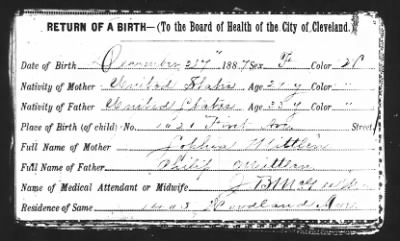 RETURN OF A BIRTH—(To the Board of Health of the City of Cleveland.)
Date of Birth December 27" 1887 Sex F Color W
Nativity of Mother United States Age 21 y Color "
Nativity of Father United States Age y Color "
Place of Birth (of child) No. First Ave Street
Full Name of Mother Sophia Mittler
Full Name of Father Philip Mittler
Name of Medical Attendant or Midwife
Residence of Same Woodland Ave